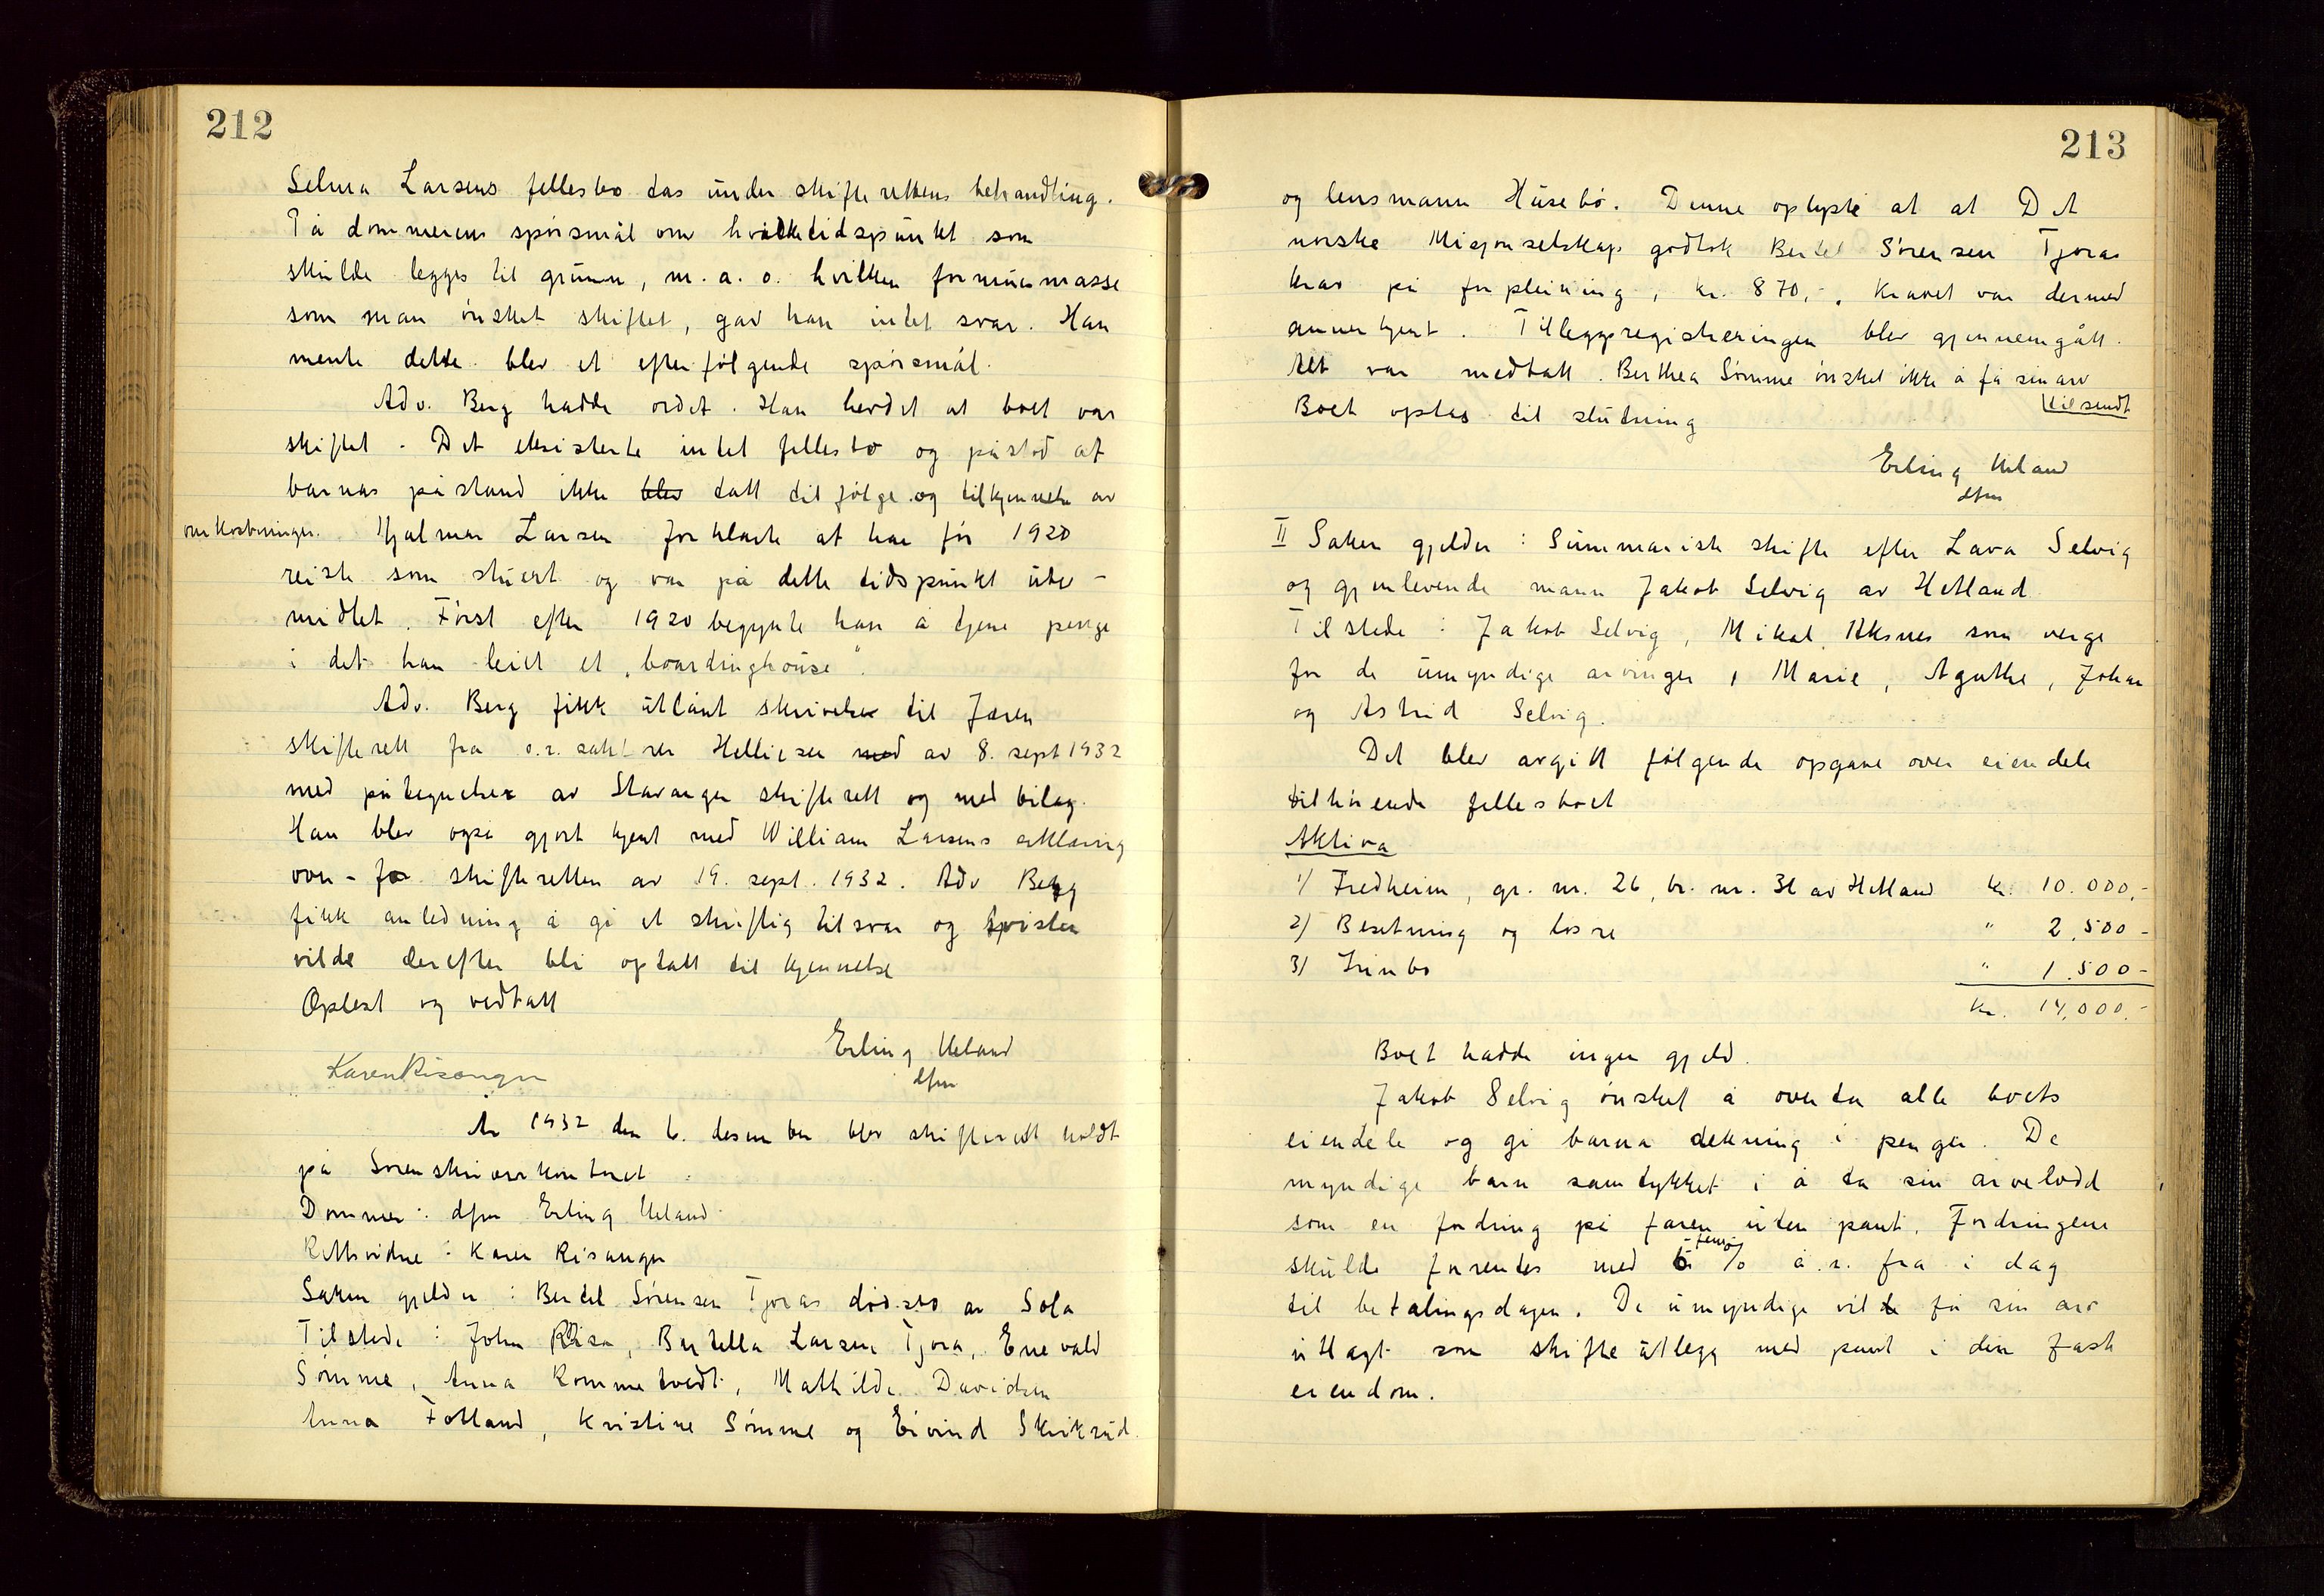 212
Selma Larsens fellesbo tas under skifterettens behandling.
På dommerens spørsmål om hvilket tidspunkt som
skulde legges til grunn, m. a. o. hvilken formuesmasse
som man ønsket skiftet, gav han intet svar. Han
mente dette blev et efterfølgende spørsmål.
Adv. Berg hadde ordet. Han hevdet at boet var
skiftet. Det eksisterte intet fellesbo og påstod at
barnas påstand ikke blev tatt til følge og tilkjennelse av
omkostninger. Hjalmar Larsen forklarte at han før 1920
reiste som stuert og var på dette tidspunkt ube-
midlet. Først efter 1920 begynte han å tjene penge
i det han leiet et "boardinghouse".
Adv. Berg fikk utlånt skrivelse til Jæren
skifterett fra o.r. sakfører Helliesen med av 8. sept 1932
med påtegnelse av Stavanger skifterett og med bilag.
Han blev også gjort kjent med William Larsens erklæring
oven-for skifteretten av 19. sept. 1932. Adv Berg
fikk anledning å gi et skriftlig tilsvar og tvisten
vilde derefter bli optatt til kjennelse
Oplest og vedtatt
Erling Ueland
dfm
Karen Risanger
År 1932 den 6. desember blev skifterett holdt
på Sorenskriverkontoret
Dommer: dfm Erling Ueland
Rettsvidne: Karen Risanger
Saken gjelder: Bertel Sørensen Tjoras dødsbo av Sola
Tilstede: John Risa, Bertella Larsen Tjora, Enevald
Sømme, Anna Rommetvedt, Mathilde Davidsen
Anna Folland, Kristine Sømme og Eivind Skriksrud
213
og lensmann Husebø. Denne oplyste at at Det
norske Misjonselskap godtok Bertel Sørensen Tjoras
krav på forpleining, kr. 870,-. Kravet var dermed
annerkjent. Tilleggsregistreringen blev gjennemgått.
Alt var medtatt. Berthea Sømme ønsket ikke å få sin arv
tilsendt
Boet optas til slutning
Erling Ueland
dfm
II Saken gjelder: Summarisk skifte efter Lava Selvig
og gjenlevende mann Jakob Selvig av Hetland.
Tilstede: Jakob Selvig, Mikal Aksnes som verge
for de umyndige arvinger, Marie, Agathe, Johan
og Astrid Selvig.
Det blev avgitt følgende opgave over eiendele
tilhørende fellesboet
Aktiva
1) Fredheim, gr. nr. 26, br. nr. 31 av Hetland kr. 10.000,-
2) Besetning og løsøre " 2.500 -
3) Innbo " 1.500 -
kr. 14,000.-
Boet hadde ingen gjeld.
Jakob Selvig ønsket å overta alle boets
eiendele og gi barna dekning i penger. De
myndige barn samtykket i å ta sin arvelodd
som en fordring på faren uten pant. Fordringene
skulde forrentes med 5 -fem- % å. r. fra i dag
til betalingsdagen. De umyndige vilde få sin arv
utlagt som skifteutlegg med pant i den faste
eiendom.